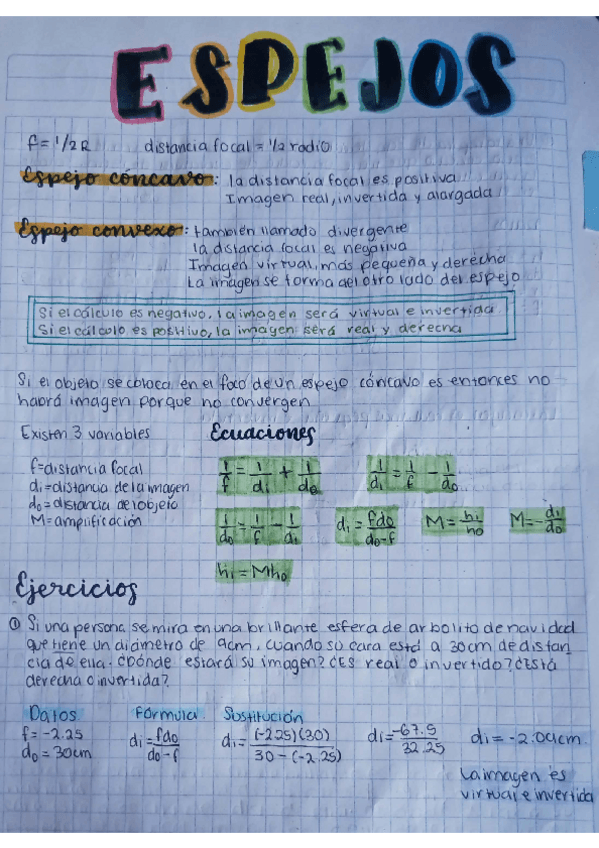 ESPEJOS
f = 1/2 R distancia focal = 1/2 radio
Espejo cóncavo: la distancia focal es positiva
Imagen real, invertida y alargada
Espejo convexo: también llamado divergente
la distancia focal es negativa
Imagen virtual, más pequeña y derecha
La imagen se forma del otro lado del espejo
Si el cálculo es negativo, la imagen será virtual e invertida
Si el cálculo es positivo, la imagen será real y derecha
Si el objeto se coloca en el foco de un espejo cóncavo es entonces no
habrá imagen porque no convergen
Existen 3 variables
f=distancia focal
di=distancia de la imagen
do=distancia del objeto
M=amplificación
Ecuaciones
1/f = 1/di + 1/do 1/di = 1/f - 1/do
1/do = 1/f - 1/di di = fdo/do-f M = hi/ho M = -di/do
hi = Mho
Ejercicios
① Si una persona se mira en una brillante esfera de arbolito de navidad
que tiene un diámetro de 9cm, cuando su cara está a 30cm de distan
cia de ella. ¿Dónde estará su imagen? ¿Es real o invertido? ¿Está
derecha o invertida?
Datos Fórmula Sustitución
f = -2.25 di = fdo/do-f di = (-2.25)(30)/30-(-2.25) di = -67.5/32.25 di = -2.09cm.
do = 30cm
La imagen es
virtual e invertida